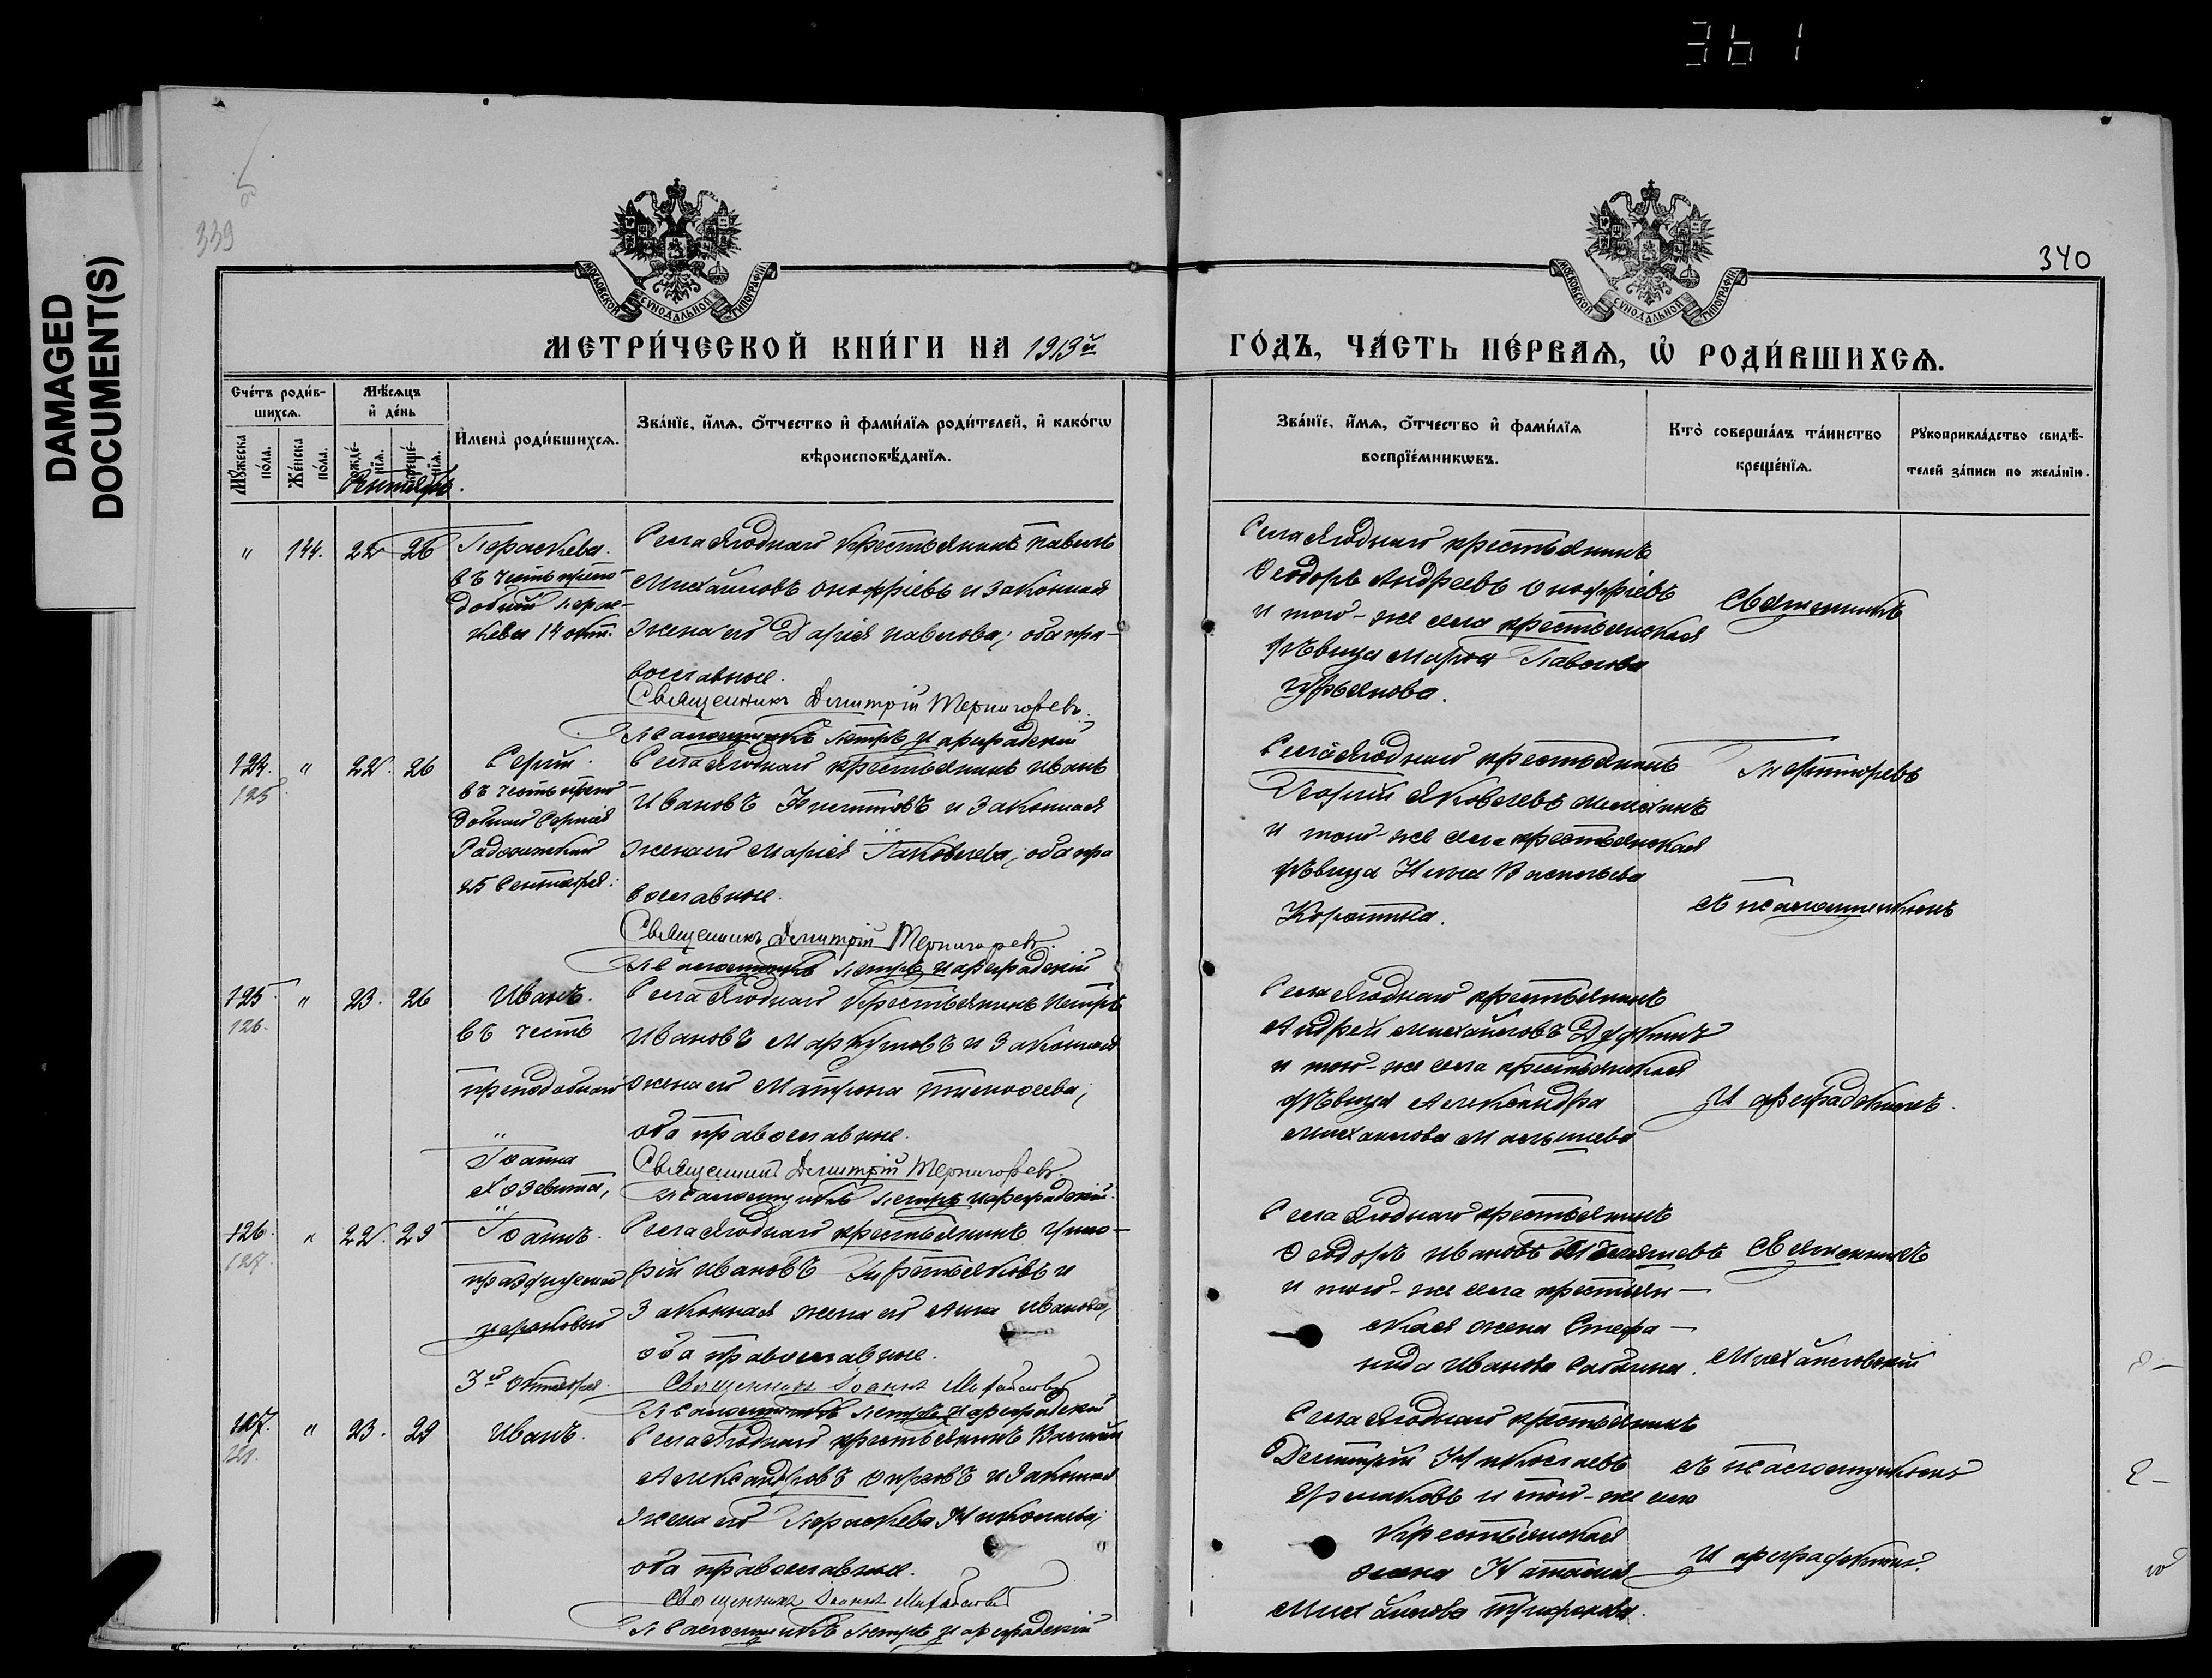 361
DAMAGED
DOCUMENT(S)
339
340
МОСКОВСКОЙ СѴНОДАЛЬНОЙ ТИПОГРАФІИ
МОСКОВСКОЙ СѴНОДАЛЬНОЙ ТИПОГРАФІИ
МЕТРИ́ЧЕСКОЙ КНИ́ГИ НА 1913й
ГО́ДЪ, ЧА́СТЬ ПЕ́РВАѦ, Ѡ҆ РОДИ́ВШИХСѦ.
Сче́тъ роди́в-
шихсѧ.
Мѣ́сѧцъ
и҆ де́нь
Мꙋ́жеска по́ла.
Же́нска по́ла.
рожде́-
нїѧ.
креще́-
нїѧ.
И҆мена̀ роди́вшихсѧ.
Зва́нїе, и҆́мѧ, ѻ҆́тчество и҆ фами́лїѧ роди́телей, и҆ како́гѡ
вѣроисповѣ́данїѧ.
Зва́нїе, и҆́мѧ, ѻ҆́тчество и҆ фами́лїѧ
воспрїе́мникѡвъ.
Кто̀ соверша́лъ та́инство
креще́нїѧ.
Рꙋкоприкла́дство свидѣ́-
телей за́писи по жела́нїю.
Сентябрь.
" 144. 22 26 Параскева.
въ честь препо-
добной Парас-
кевы 14 окт.
Села Ягоднаго крестьянинъ Павелъ
Михайловъ Онофріевъ и законная
жена его Дарія Павлова; оба пра-
вославные.
Священникъ Димитрій Терниговъ.
Псаломщикъ Петръ Цареградскій
Села Ягоднаго крестьянинъ
Ѳеодоръ Андреевъ Онофріевъ
и того-же села крестьянская
дѣвица Марѳа Павлова
Гурьянова.
Священникъ
124. " 22. 26 Сергій.
125
въ честь препо-
добнаго Сергія
Радонежскаго
25 Сентября.
Села Ягоднаго крестьянинъ Иванъ
Ивановъ и законная
жена его Марія Яковлева; оба пра
вославные.
Священникъ Димитрій
Псаломщикъ Петръ Цареградскій
Села Ягоднаго крестьянинъ
Георгій Яковлевъ
и того-же села крестьянская
дѣвица Анна Васильева
съ псаломщикомъ
125. " 23. 26 Иванъ.
126.
въ честь
преподобнаго
Іоанна
Хозевита,
Села Ягоднаго крестьянинъ Петръ
Ивановъ и законная
жена его Матрона Тимоѳеева;
оба православные.
Священникъ Димитрій
Псаломщикъ Петръ Цареградскій.
Села Ягоднаго крестьянинъ
Андрей Михайловъ
и того-же села крестьянская
дѣвица Александра
Михайлова Малышева
Цареградскимъ.
126. " 22. 29 Іоаннъ.
127.
3й Октября.
Села Ягоднаго крестьянинъ Григо-
рій Ивановъ Третьяковъ и
законная жена его Анна Иванова,
оба православные.
Священникъ Іоаннъ Михайловскій
Псаломщикъ Петръ Цареградскій
Села Ягоднаго крестьянинъ
Ѳеодоръ Ивановъ
и того-же села крестьян-
ская жена Стефа-
нида Иванова
Священникъ
Михайловскій
127. " 23. 29 Иванъ.
128.
Села Ягоднаго крестьянинъ Василій
Александровъ и законная
жена его Параскева Николаева;
оба православные.
Священникъ Іоаннъ Михайловскій
Псаломщикъ Петръ Цареградскій
Села Ягоднаго крестьянинъ
Димитрій Николаевъ
Ермаковъ и того-же села
крестьянская
жена Наталія
Михайлова
съ псаломщикомъ
Цареградскимъ.